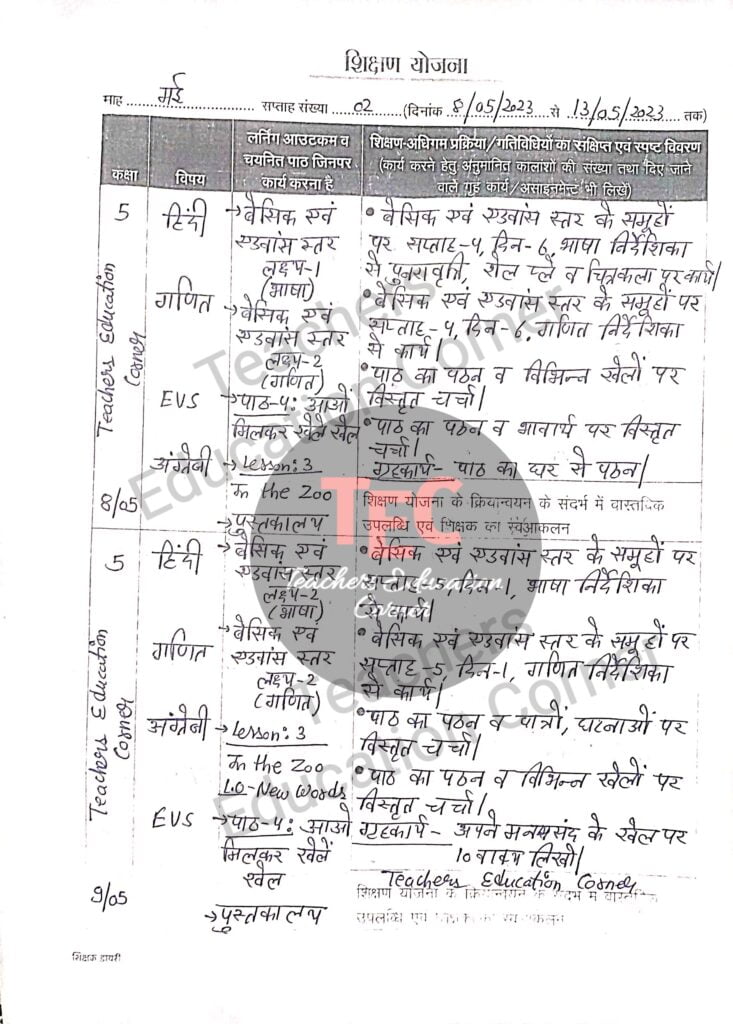 शिक्षण योजना
माह मई सप्ताह संख्या 02 (दिनांक 8/05/2023 से 13/05/2023 तक)
कक्षा
विषय
लर्निंग आउटकम व
चयनित पाठ जिनपर
कार्य करना है
शिक्षण-अधिगम प्रक्रिया/गतिविधियों का संक्षिप्त एवं स्पष्ट विवरण
(कार्य करने हेतु अनुमानित कालांशों की संख्या तथा दिए जाने
वाले गृह कार्य/असाइनमेन्ट भी लिखें)
5
हिंदी
→ बेसिक एवं
एडवांस स्तर
लक्ष्य-1
(भाषा)
• बेसिक एवं एडवांस स्तर के समूहों
पर सप्ताह-4, दिन-6, भाषा निर्देशिका
से पुनरावृत्ती, रोल प्ले व चित्रकला पर कार्य।
गणित
→ बेसिक एवं
एडवांस स्तर
लक्ष्य-2
(गणित)
• बेसिक एवं एडवांस स्तर के समूहों पर
सप्ताह-4, दिन-6, गणित निर्देशिका
से कार्य।
EVS
→ पाठ-4: आओ
मिलकर खेलें खेल
• पाठ का पठन व विभिन्न खेलों पर
विस्तृत चर्चा।
अंग्रेजी
→ Lesson: 3
In the Zoo
• पाठ का पठन व भावार्थ पर विस्तृत
चर्चा।
गृहकार्य- पाठ का घर से पठन।
8/05
→ पुस्तकालय
शिक्षण योजना के क्रियान्वयन के संदर्भ में वास्तविक
उपलब्धि एवं शिक्षक का स्वआकलन
Teachers Education
Corner
5
हिंदी
→ बेसिक एवं
एडवांस स्तर
लक्ष्य-2
(भाषा)
• बेसिक एवं एडवांस स्तर के समूहों पर
सप्ताह-5, दिन-1, भाषा निर्देशिका
से कार्य।
गणित
→ बेसिक एवं
एडवांस स्तर
लक्ष्य-2
(गणित)
• बेसिक एवं एडवांस स्तर के समूहों पर
सप्ताह-5, दिन-1, गणित निर्देशिका
से कार्य।
अंग्रेजी
→ Lesson: 3
In the Zoo
L.O-New Words
• पाठ का पठन व पात्रों, घटनाओं पर
विस्तृत चर्चा।
EVS
→ पाठ-4: आओ
मिलकर खेलें
खेल
• पाठ का पठन व विभिन्न खेलों पर
विस्तृत चर्चा।
गृहकार्य- अपने मनपसंद के खेल पर
10 वाक्य लिखो।
9/05
→ पुस्तकालय
Teachers Education Corner
शिक्षण योजना के क्रियान्वयन के संदर्भ में वास्तविक
उपलब्धि एवं शिक्षक का स्व आकलन
Teachers Education
Corner
शिक्षक डायरी
TEC
Teachers Education
Corner
Teachers
Education Corner
Teachers
Education Corner